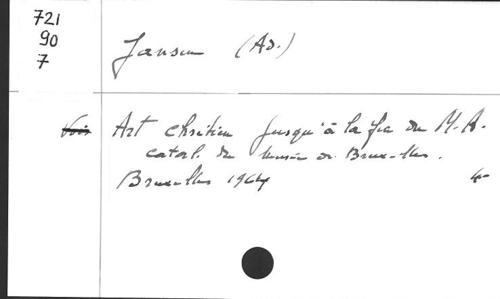 721
90
7
Jansen (Ad.)
Voir Art chrétien jusqu'à la fin du M.A.
catal. du musée de Bruxelles.
Bruxelles 1964